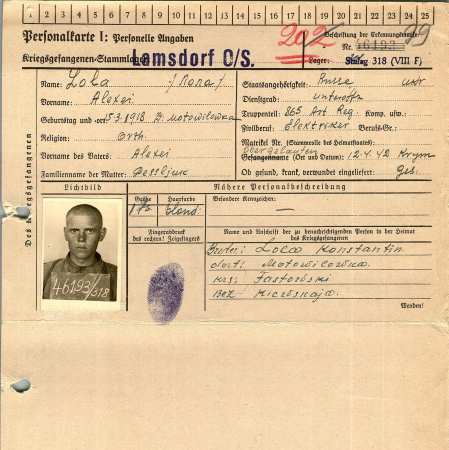 1 2 3 4 5 6 7 8 9 10 11 12 13 14 15 16 17 18 19 20 21 22 23 24 25
Personalkarte I: Personelle Angaben
Beschriftung der Erkennungsmarke
202
Nr. 46193
Kriegsgefangenen-Stammlager: Lamsdorf O/S.
Lager: Stalag 318 (VIII F)
Des Kriegsgefangenen
Name: Loba / Лоба /
Vorname: Alexei
Geburtstag und -ort 15.3.1918 D. Motowilowka
Religion: Orth.
Vorname des Vaters: Alexei
Familienname der Mutter:
Staatsangehörigkeit: Russe ukr
Dienstgrad: unteroffz
Truppenteil: 865 Art Reg. Komp. usw.:
Zivilberuf: Elektriker Berufs-Gr.:
Matrikel Nr. (Stammrolle des Heimatstaates):
Übergelaufen
Gefangennahme (Ort und Datum): 12.4.42 Krym
Ob gesund, krank, verwundet eingeliefert: ges.
Lichtbild
46193/318
Nähere Personalbeschreibung
Größe
Haarfarbe
Besondere Kennzeichen:
blond
—
Fingerabdruck
des rechten! Zeigefingers
Name und Anschrift der zu benachrichtigenden Person in der Heimat
des Kriegsgefangenen
Bruder: Loba Konstantin.
dort: Motowilowka
Krs: Fastowski
Bez Kiewskaja.
Wenden!